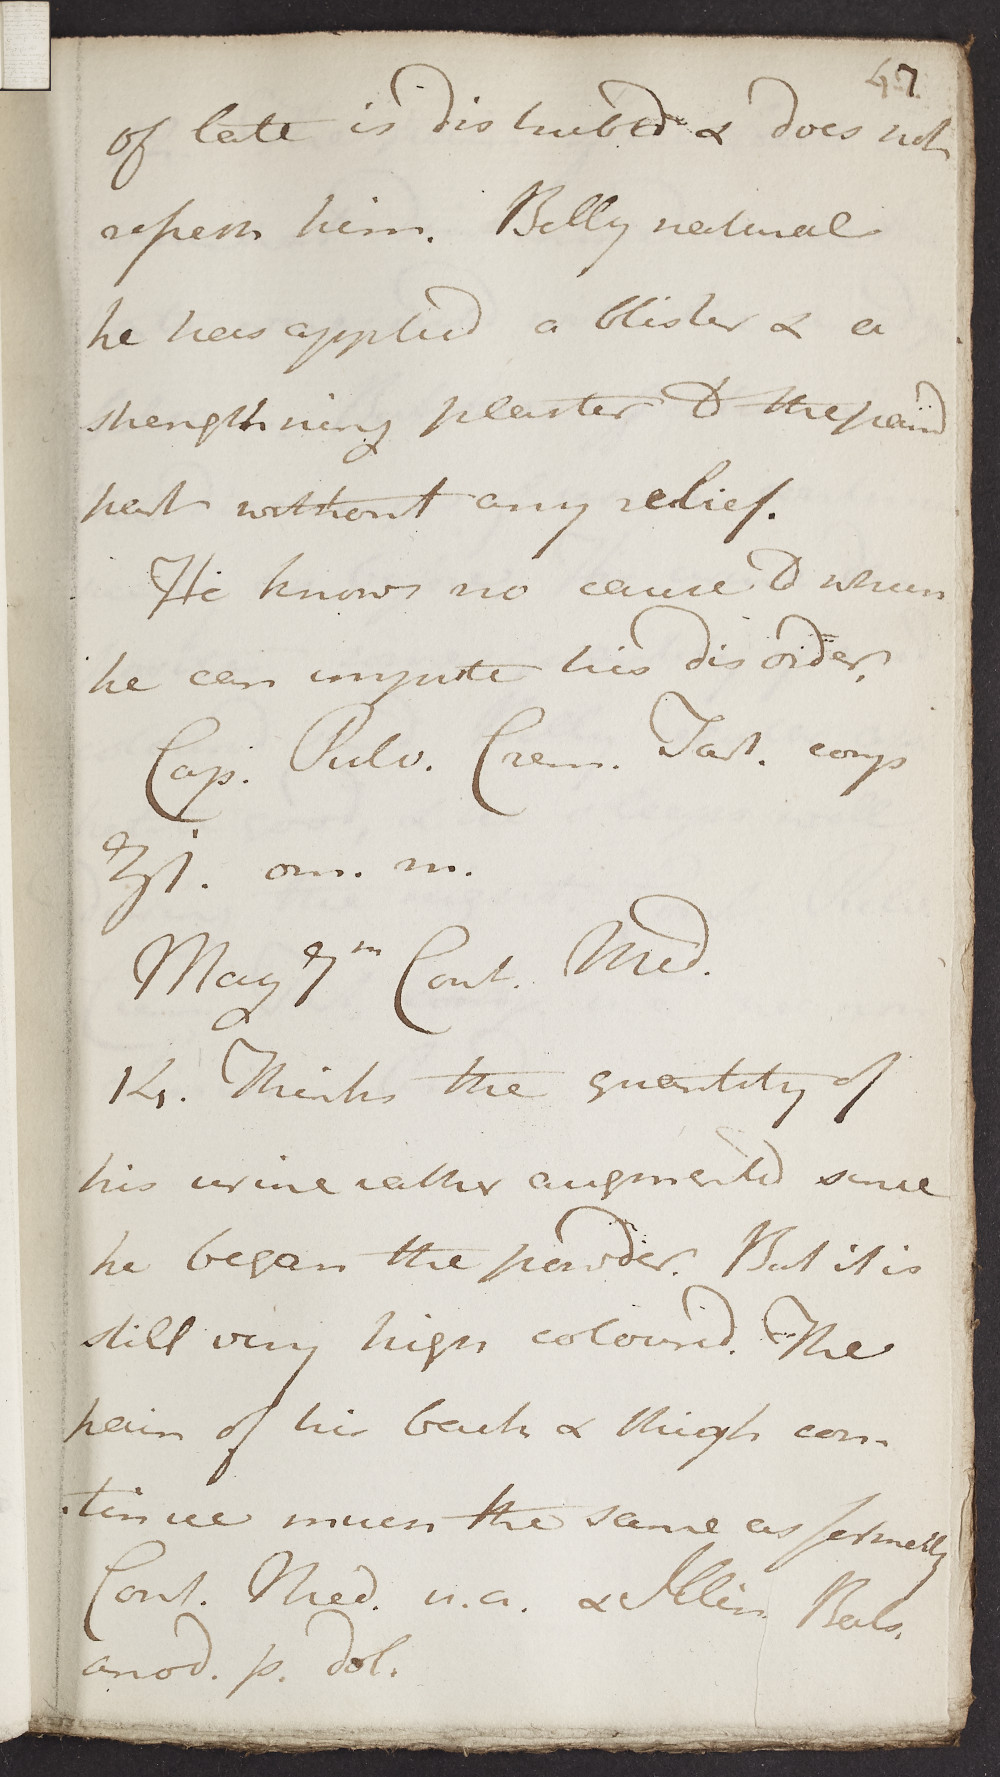 47
of late is disturbed & does not
refresh him. Belly natural
he has applied a blister & a
strengthning plaster to the paind
part without any relief.
He knows no cause to whom
he can impute his disorder,
Cap. Pulv. Crem. Tart. comp
ʒj. om. m.
May 7m Cont. Med.
14. Thinks the quantity of
his urine rather augmented since
he began the powder. But it is
still very high coloured. The
pain of his back & thigh con-
tinue much the same as formerly
Cont. Med. u.a. & Illin Bals.
anod. p. dol.